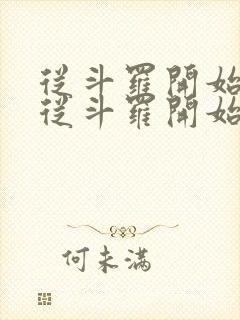 從斗羅開始
從斗羅開始
何未滿